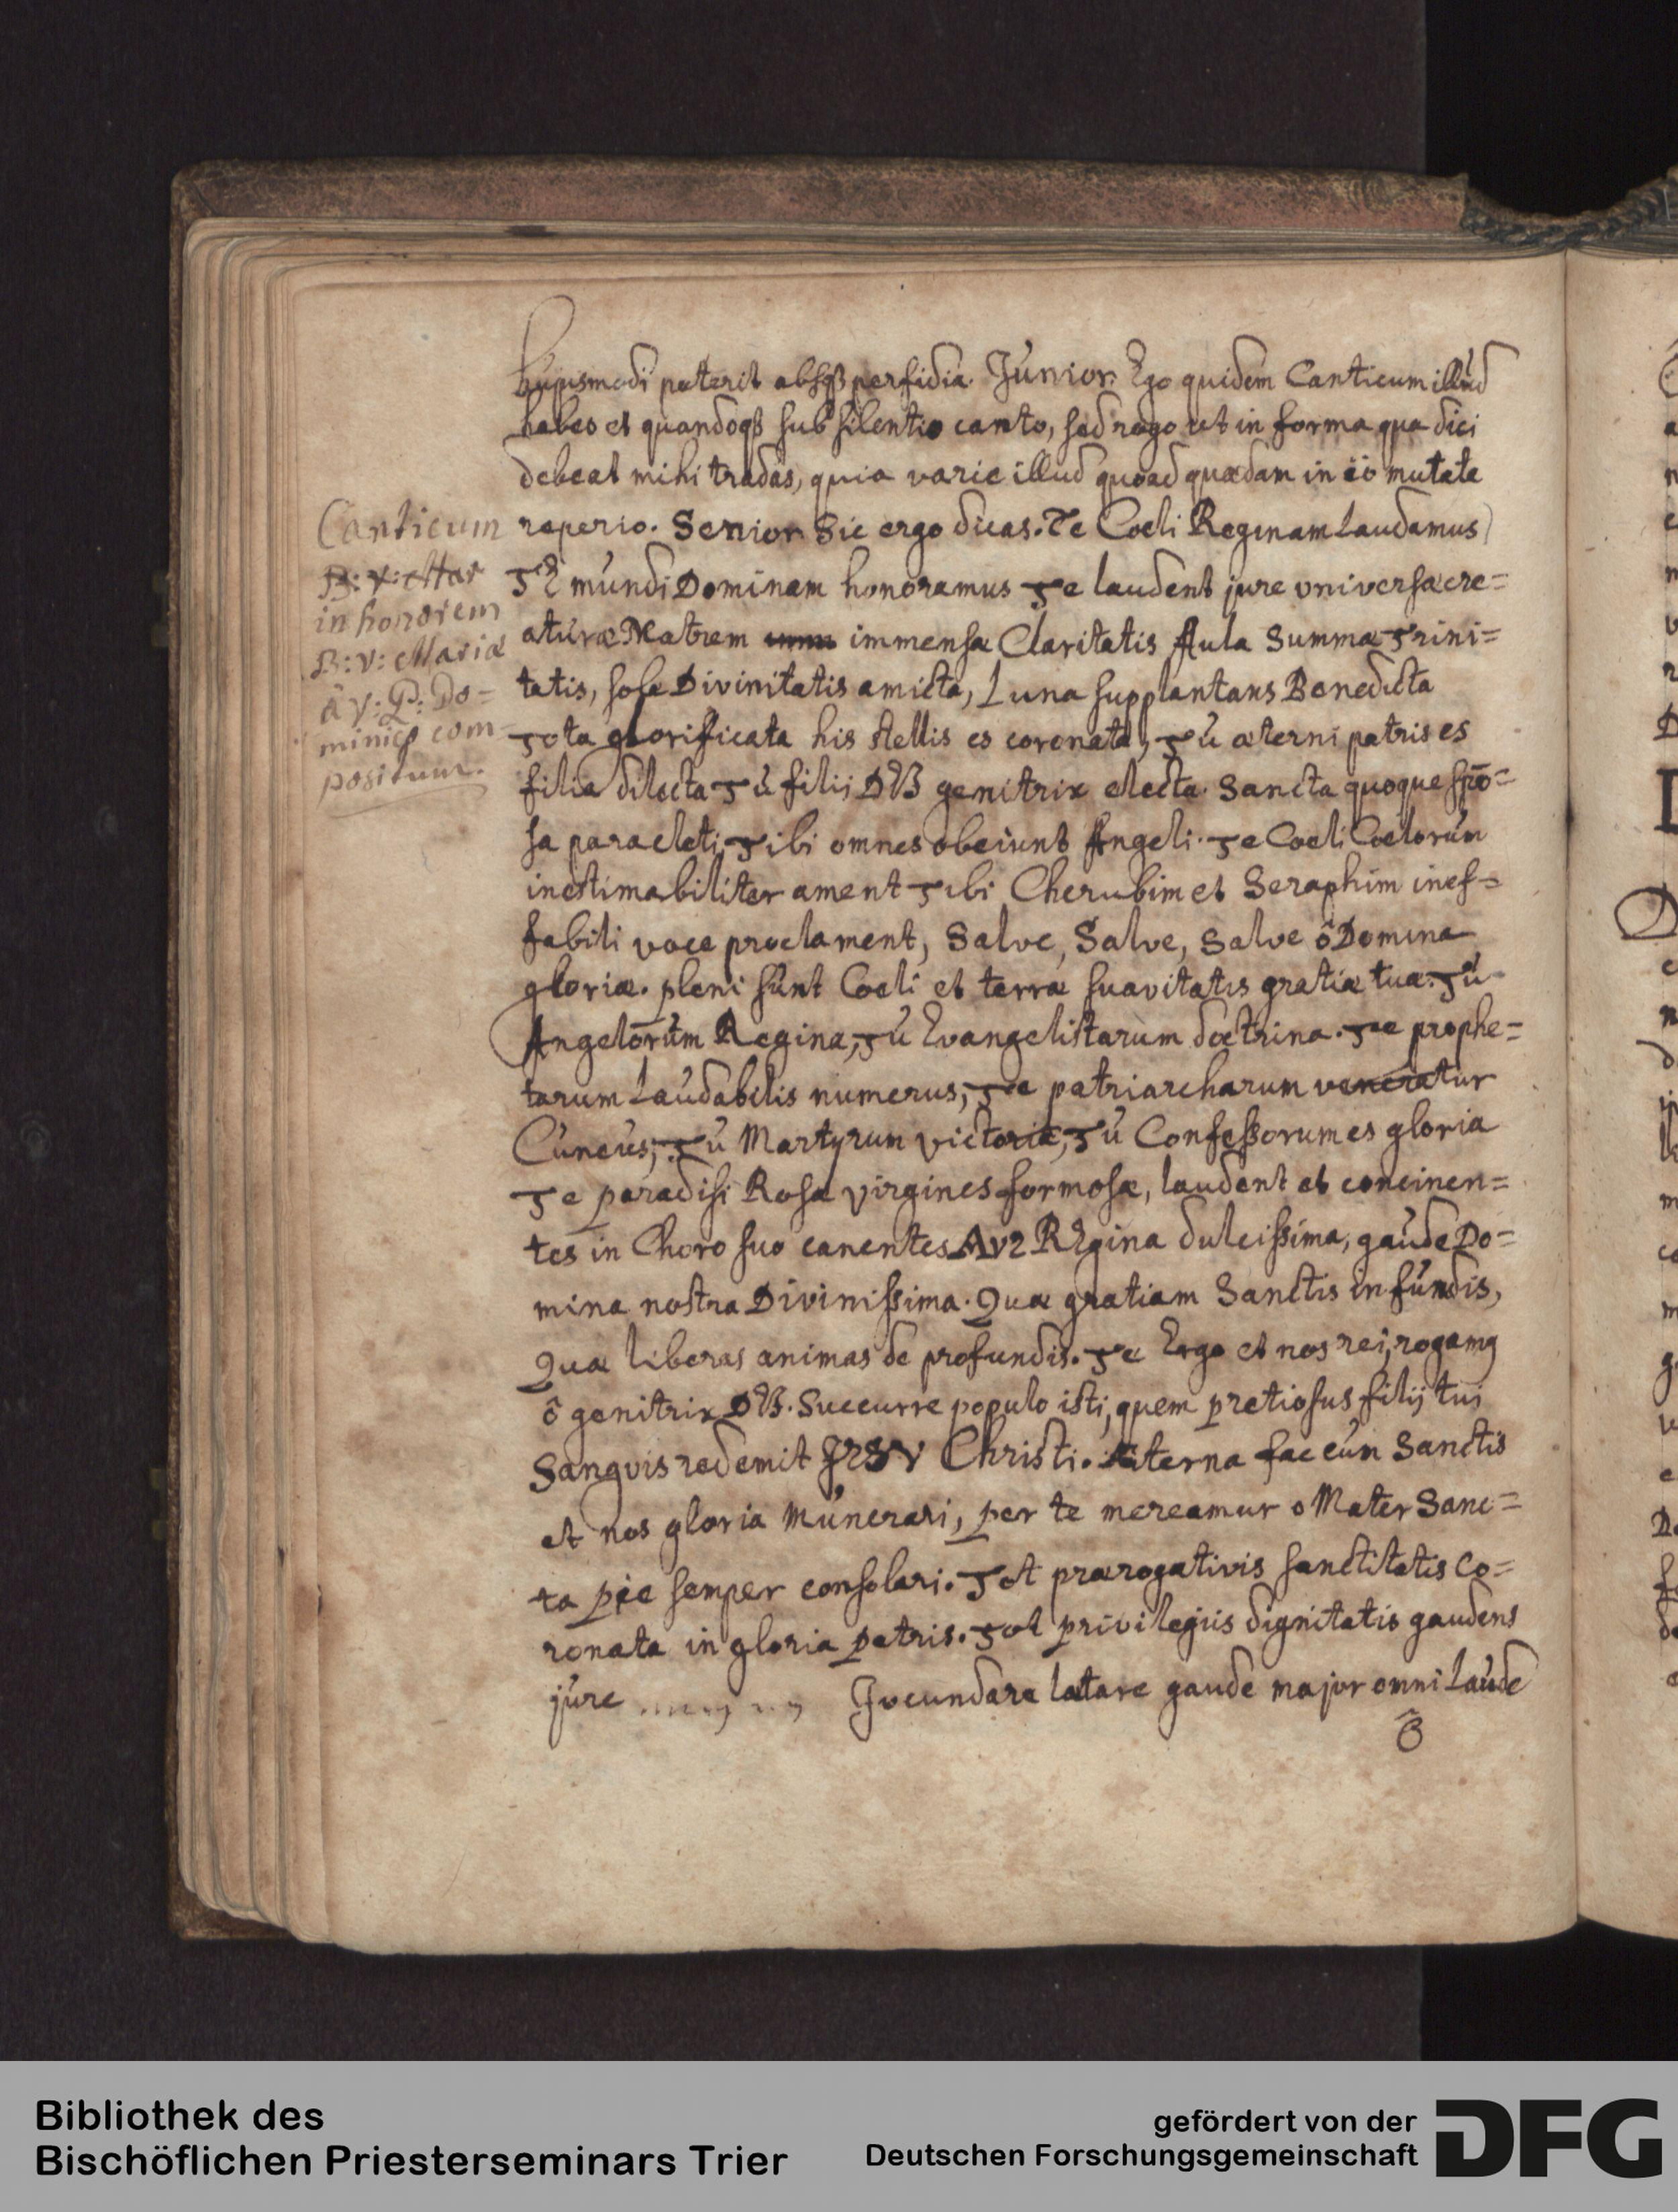 hujusmodi poterit absq3 perfidia. Junior. Ego quidem Canticum illud
habeo et quandoq3 sub silentio canto, sed rogo ut in forma qua dici
debeat mihi tradas, quia varie illud quoad quædam in eo mutata
reperio. Senior Sic ergo dicas. Te Coeli Reginam Laudamus
TE mundi Dominam honoramus Te laudent jure vniversæ cre=
aturæ Matrem immensæ Claritatis Aula Summæ Trini=
tatis, sole Divinitatis amicta, Luna supplantans Benedicta
Tota glorificata his stellis es coronata, Tu æterni patris es
filia dilecta Tu filij DEI genitrix electa. Sancta quoque spō=
sa paracleti, Tibi omnes obediunt Angeli. Te Coeli Coelorum
inestimabiliter ament Tibi Cherubim et Seraphim inef=
fabili voce proclament, Salve, Salve, Salve ô Domina
gloriæ. pleni sunt Coeli et terra suavitatis gratiæ tuæ. Tu
Angelorum Regina, Tu Evangelistarum doctrina. Te prophe=
tarum Laudabilis numerus, Te patriarcharum veneratur
Cuneus, Tu Martyrum victoria, Tu Confessorum es gloria
Te paradisi Rosæ virgines formosæ, laudent et concinen=
tes in Choro suo canentes AVE REgina dulcissima, gaude Do=
mina nostra Divinissima. Quæ gratiam Sanctis infundis,
Quæ liberas animas de profundis. Te Ergo et nos rei, rogamus
ô genitrix DEI. Succurre populo isti, quem pretiosus filij tui
Sanguis redemit JESV Christi. Æterna fac cum Sanctis
et nos gloria Munerari, per te mereamur o Mater Sanc=
ta pie semper consolari. Tot prærogativis sanctitatis Co=
ronata in gloria patris. Tot privilegiis dignitatis gaudens
jure Jocundare lætare gaude major omni Laude
ô
Canticum
B: V: Mar
in honorem
B: V: Mariæ
à V: P: Do=
minico com=
positum.
Bibliothek des
Bischöflichen Priesterseminars Trier
gefördert von der
Deutschen Forschungsgemeinschaft
DFG